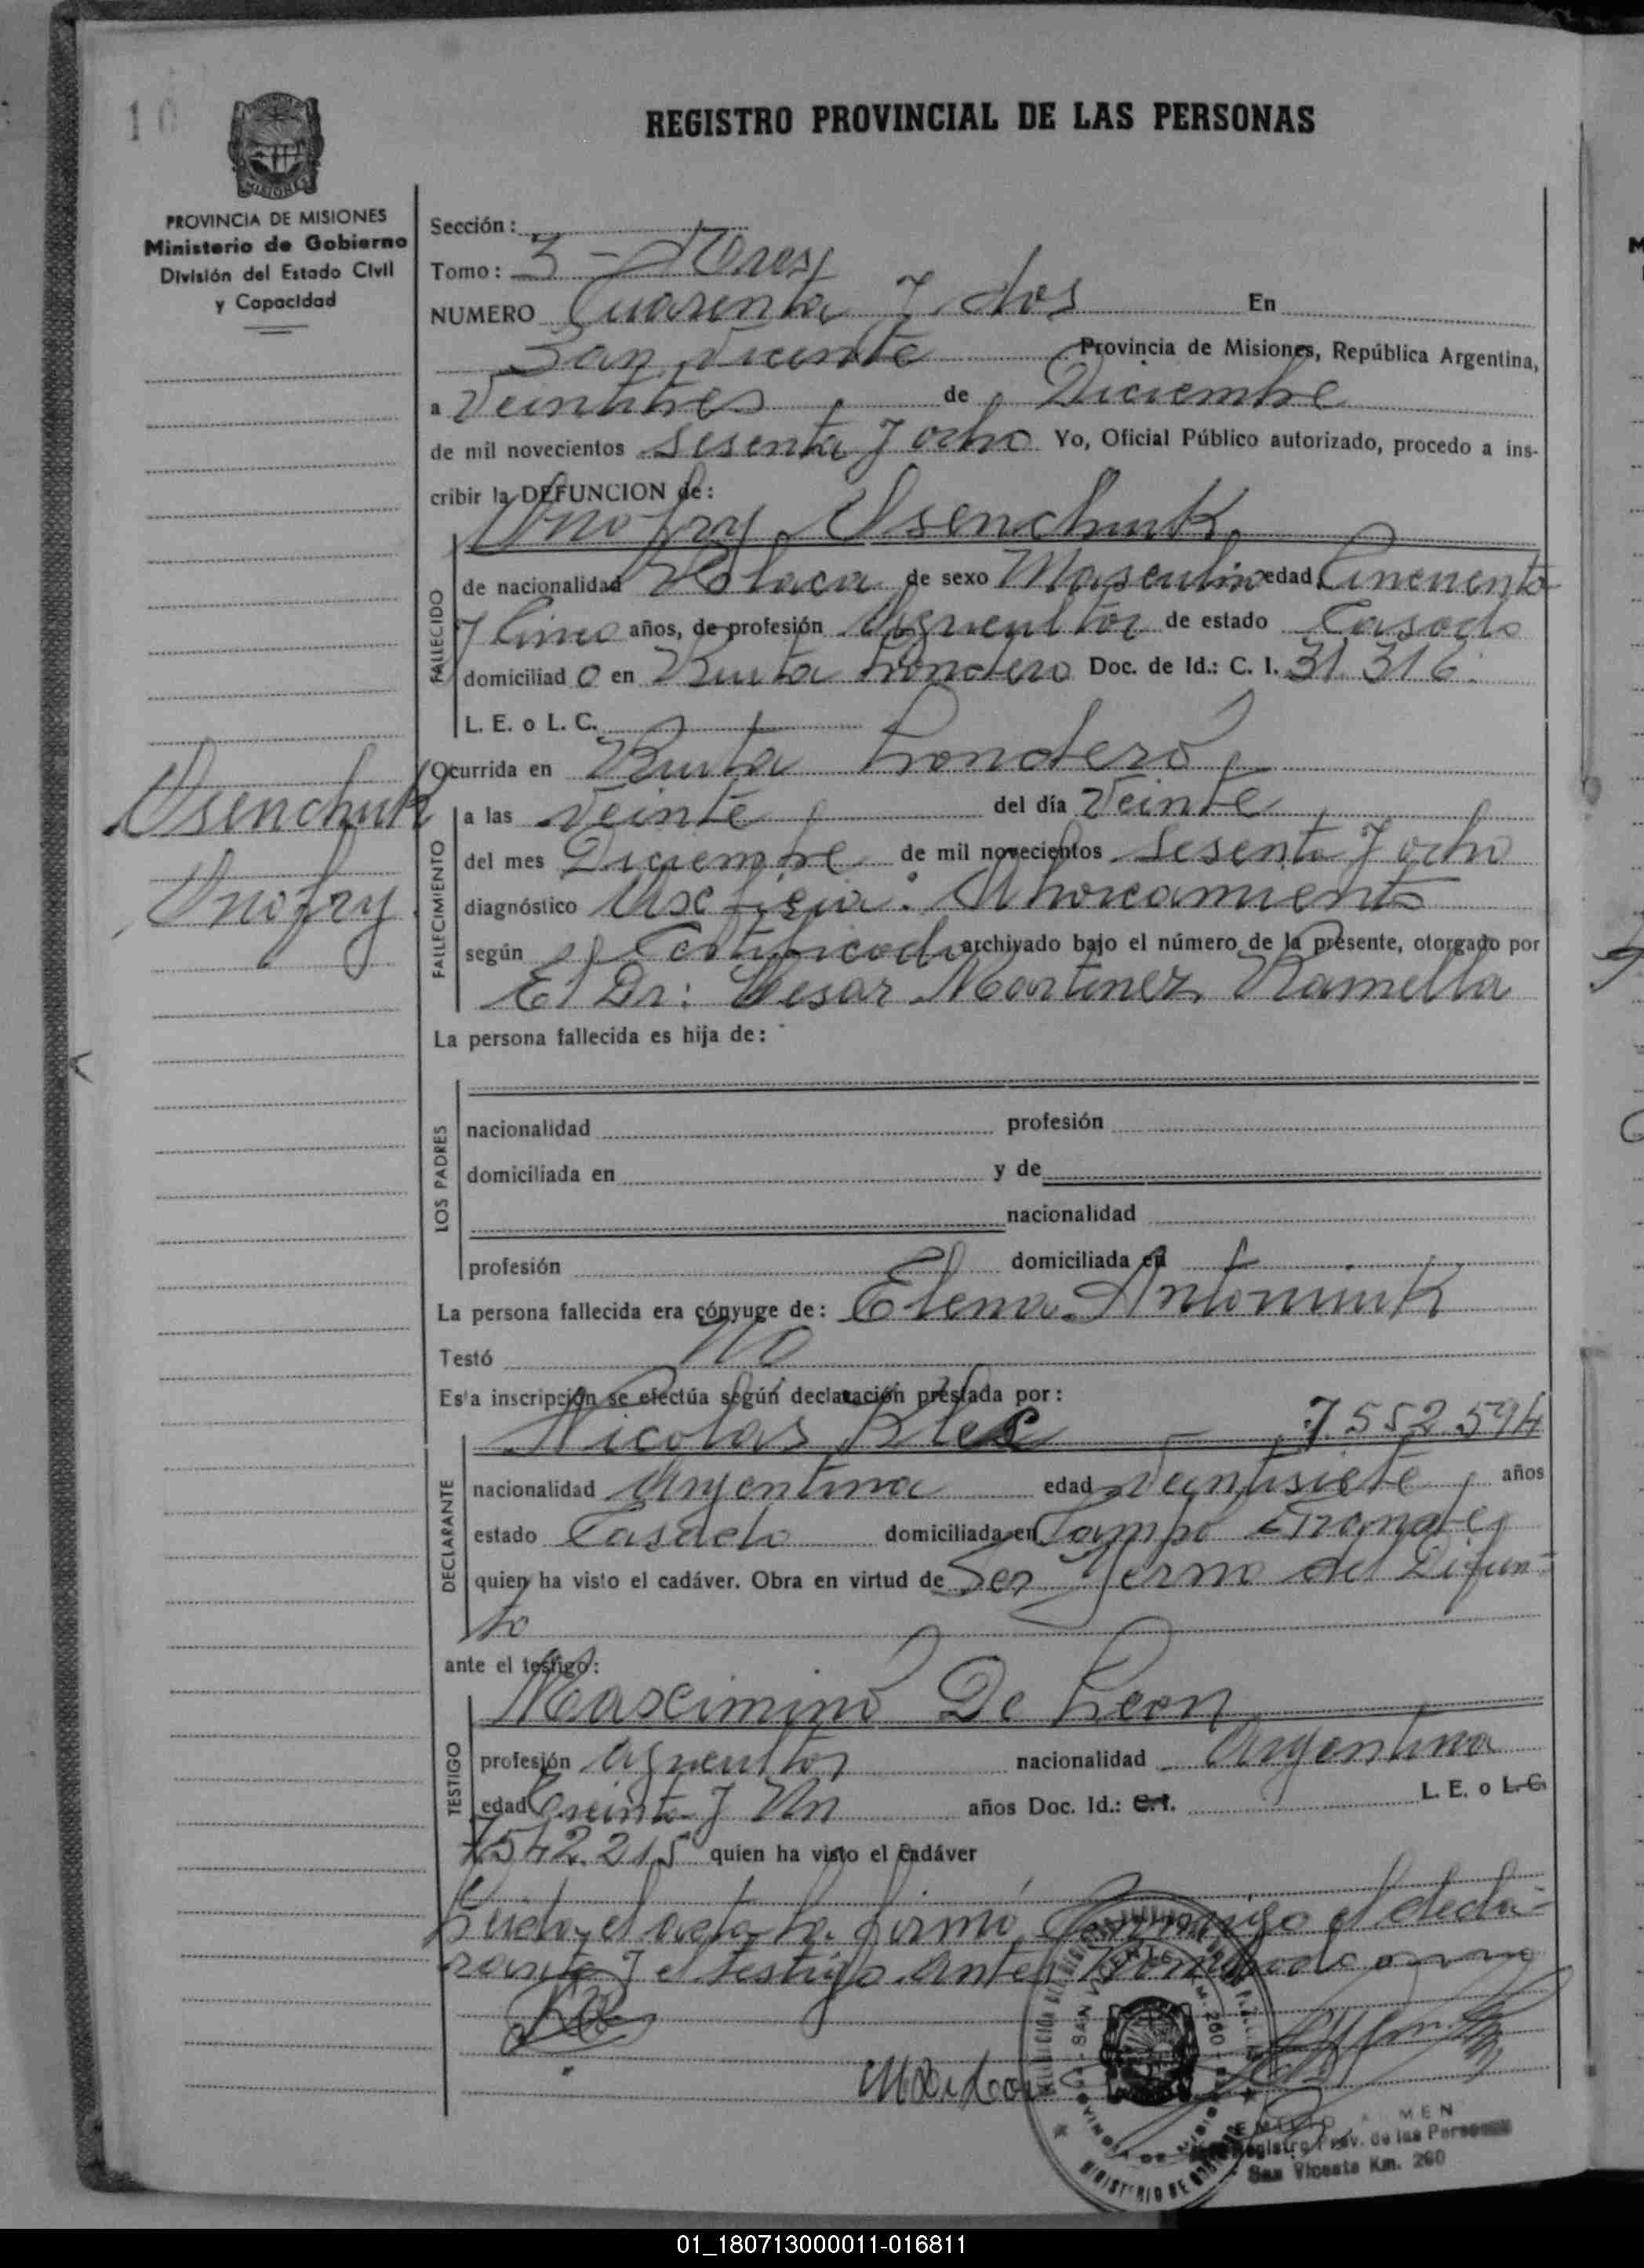 10
REGISTRO PROVINCIAL DE LAS PERSONAS
MISIONES
PROVINCIA DE MISIONES
Ministerio de Gobierno
División del Estado Civil
y Capacidad
Sección:
Tomo: 3 - Tres
NUMERO Cuarenta y dos En
San Vicente Provincia de Misiones, República Argentina,
a Veintitres de Diciembre
de mil novecientos sesenta y ocho Yo, Oficial Público autorizado, procedo a ins-
cribir la DEFUNCION de:
Onofry Osenchuk
FALLECIDO
de nacionalidad Polaca de sexo Masculino edad Cincuenta
y Cinco años, de profesión Agricultor de estado Casado
domiciliad o en Ruta Londero Doc. de Id.: C. I. 31.316.
L. E. o L. C.
Ocurrida en Ruta Londero
Osenchuk
Onofry
FALLECIMIENTO
a las Veinte del día Veinte
del mes Diciembre de mil novecientos sesenta y ocho
diagnóstico Axcficia: Ahorcamiento
según Certificado archivado bajo el número de la presente, otorgado por
El Dr: Cesar Martinez Ramella
La persona fallecida es hija de:
LOS PADRES
nacionalidad profesión
domiciliada en y de
nacionalidad
profesión domiciliada en
La persona fallecida era cónyuge de: Elena Antoniuk
Testó No
Esta inscripción se efectúa según declaración prestada por:
Nicolas 7.552.594
DECLARANTE
nacionalidad Argentina edad Veintisiete años
estado Casado domiciliada en Campo Grande
quien ha visto el cadáver. Obra en virtud de Ser Yerno del Difun-
to
ante el testigo:
Maximino De Leon
TESTIGO
profesión agricultor nacionalidad Argentina
edad Treinta y Un años Doc. Id.: C.I. L. E. o L.C.
7.542.215 quien ha visto el cadáver
Leida el acta la firmó conmigo el decla-
rante y el testigo antes nombrado
SAN VICENTE KM. 260
Registro Prov. de las Personas
San Vicente Km. 260
01_180713000011-016811